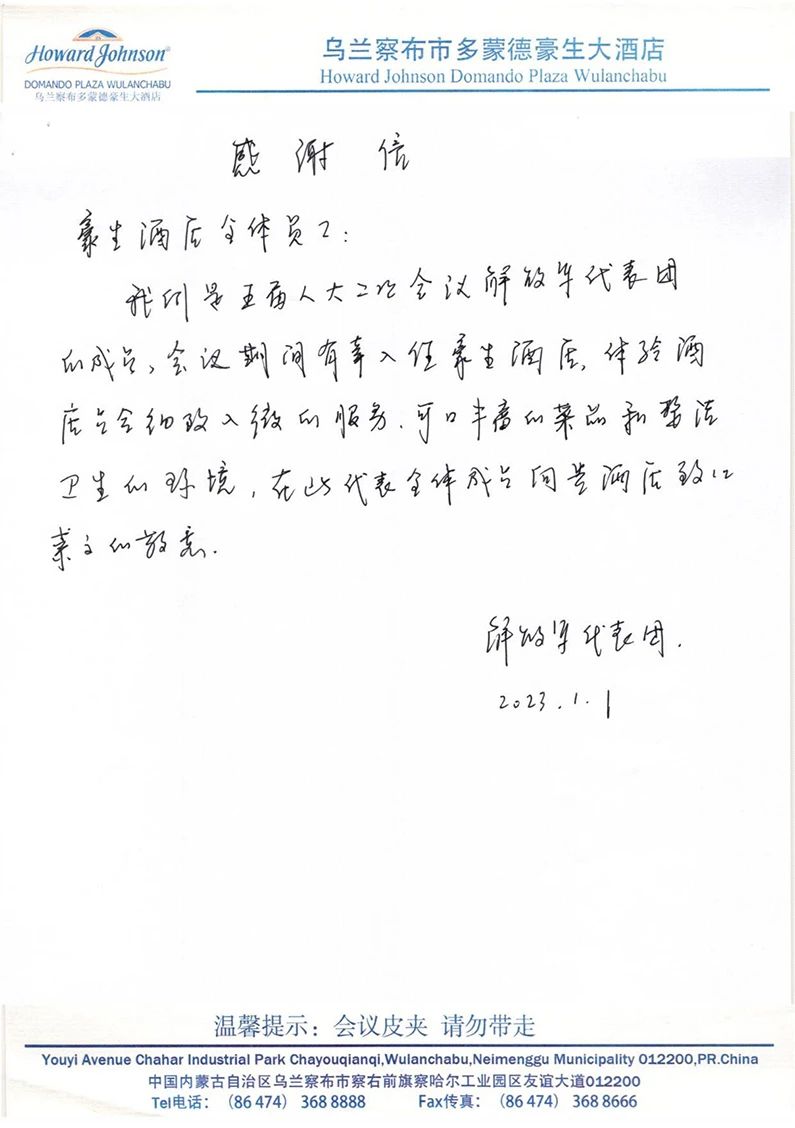 Howard Johnson®
DOMANDO PLAZA WULANCHABU
乌兰察布多蒙德豪生大酒店
乌兰察布市多蒙德豪生大酒店
Howard Johnson Domando Plaza Wulanchabu
感谢信
豪生酒店全体员工:
我们是五届人大二次会议解放军代表团
的成员,会议期间有幸入住豪生酒店,体验酒
店员全细致入微的服务,可口丰富的菜品和整洁
卫生的环境,在此代表全体成员向贵酒店致以
崇高的敬意.
解放军代表团.
2023.1.1
温馨提示:会议皮夹 请勿带走
Youyi Avenue Chahar Industrial Park Chayouqianqi,Wulanchabu,Neimenggu Municipality 012200,PR.China
中国内蒙古自治区乌兰察布市察右前旗察哈尔工业园区友谊大道012200
Tel电话: (86 474) 368 8888 Fax传真: (86 474) 368 8666